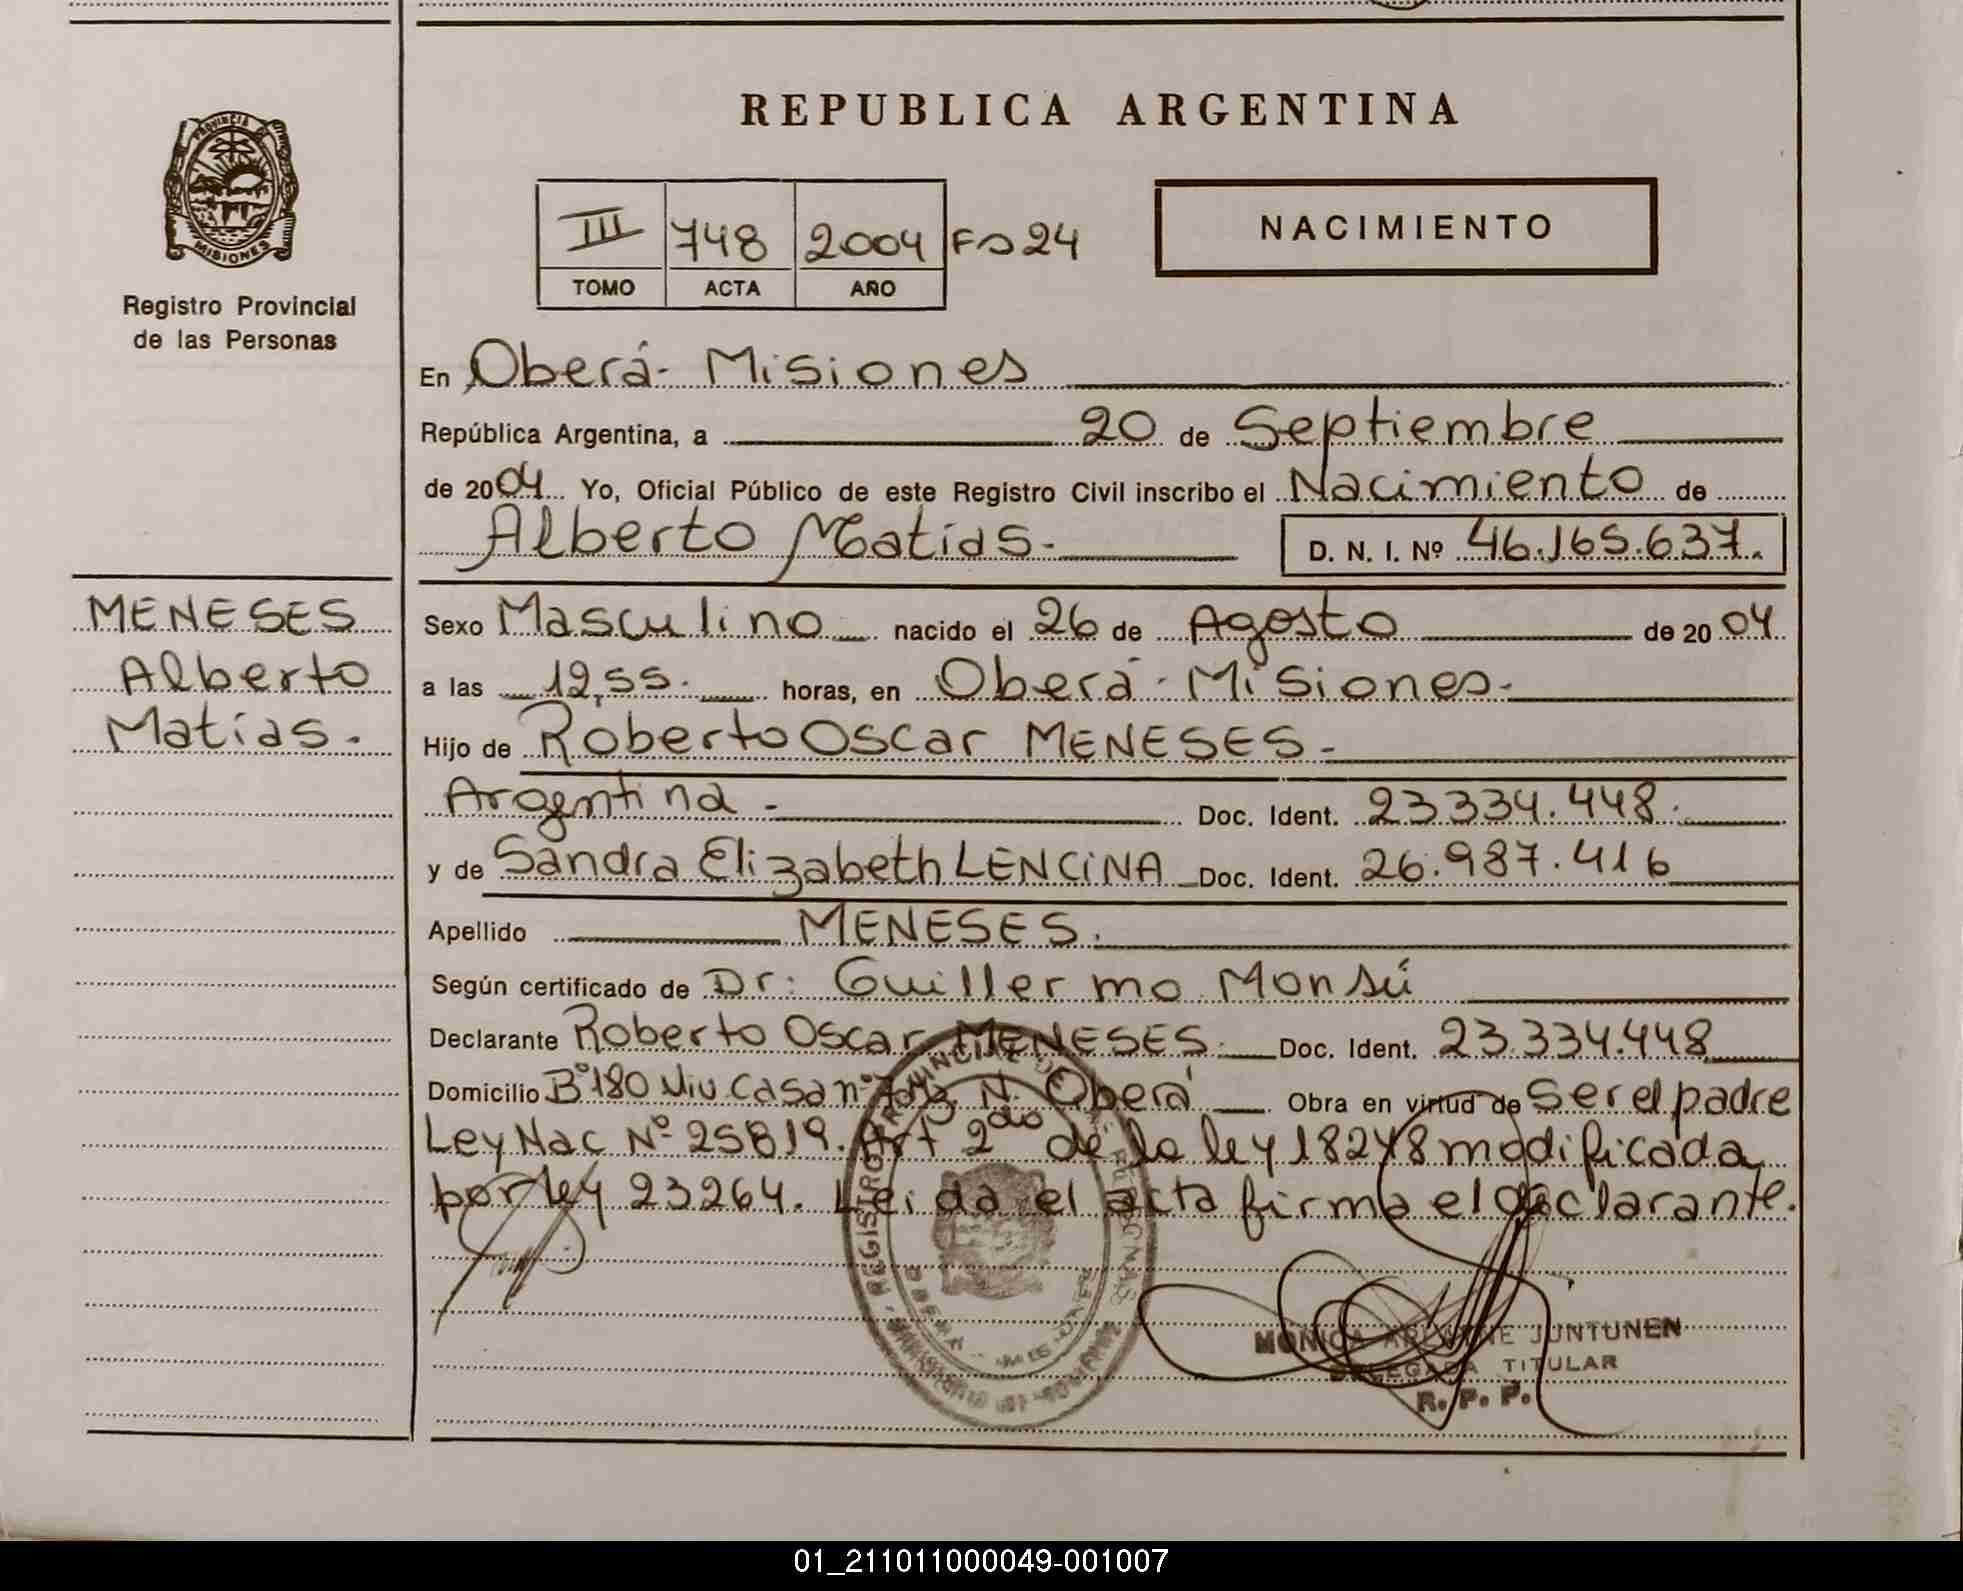 REPUBLICA ARGENTINA
PROVINCIA DE
MISIONES
Registro Provincial
de las Personas
III 748 2004 Fº 24
TOMO ACTA AÑO
NACIMIENTO
En Oberá - Misiones
República Argentina, a 20 de Septiembre
de 2004 Yo, Oficial Público de este Registro Civil inscribo el Nacimiento de
Alberto Matías.- D. N. I. Nº 46.165.637.
MENESES
Alberto
Matías.
Sexo Masculino nacido el 26 de Agosto de 2004
a las 12,55. horas, en Oberá - Misiones.
Hijo de Roberto Oscar MENESES -
Argentina - Doc. Ident. 23 334.448.
y de Sandra Elizabeth LENCINA Doc. Ident. 26.987.416
Apellido MENESES.
Según certificado de Dr: Guillermo Monsú
Declarante Roberto Oscar MENESES. Doc. Ident. 23.334.448
Domicilio Bº 180 Viv Casa nº N. Oberá Obra en virtud de Ser el padre
Ley Nac Nº 25819. Art 2do de la ley 18248 modificada
por ley 23264. Leída el acta firma el declarante.
REGISTRO PROVINCIAL DE LAS PERSONAS
MONICA JUNTUNEN
DELEGADA TITULAR
R. P. P.
01_211011000049-001007